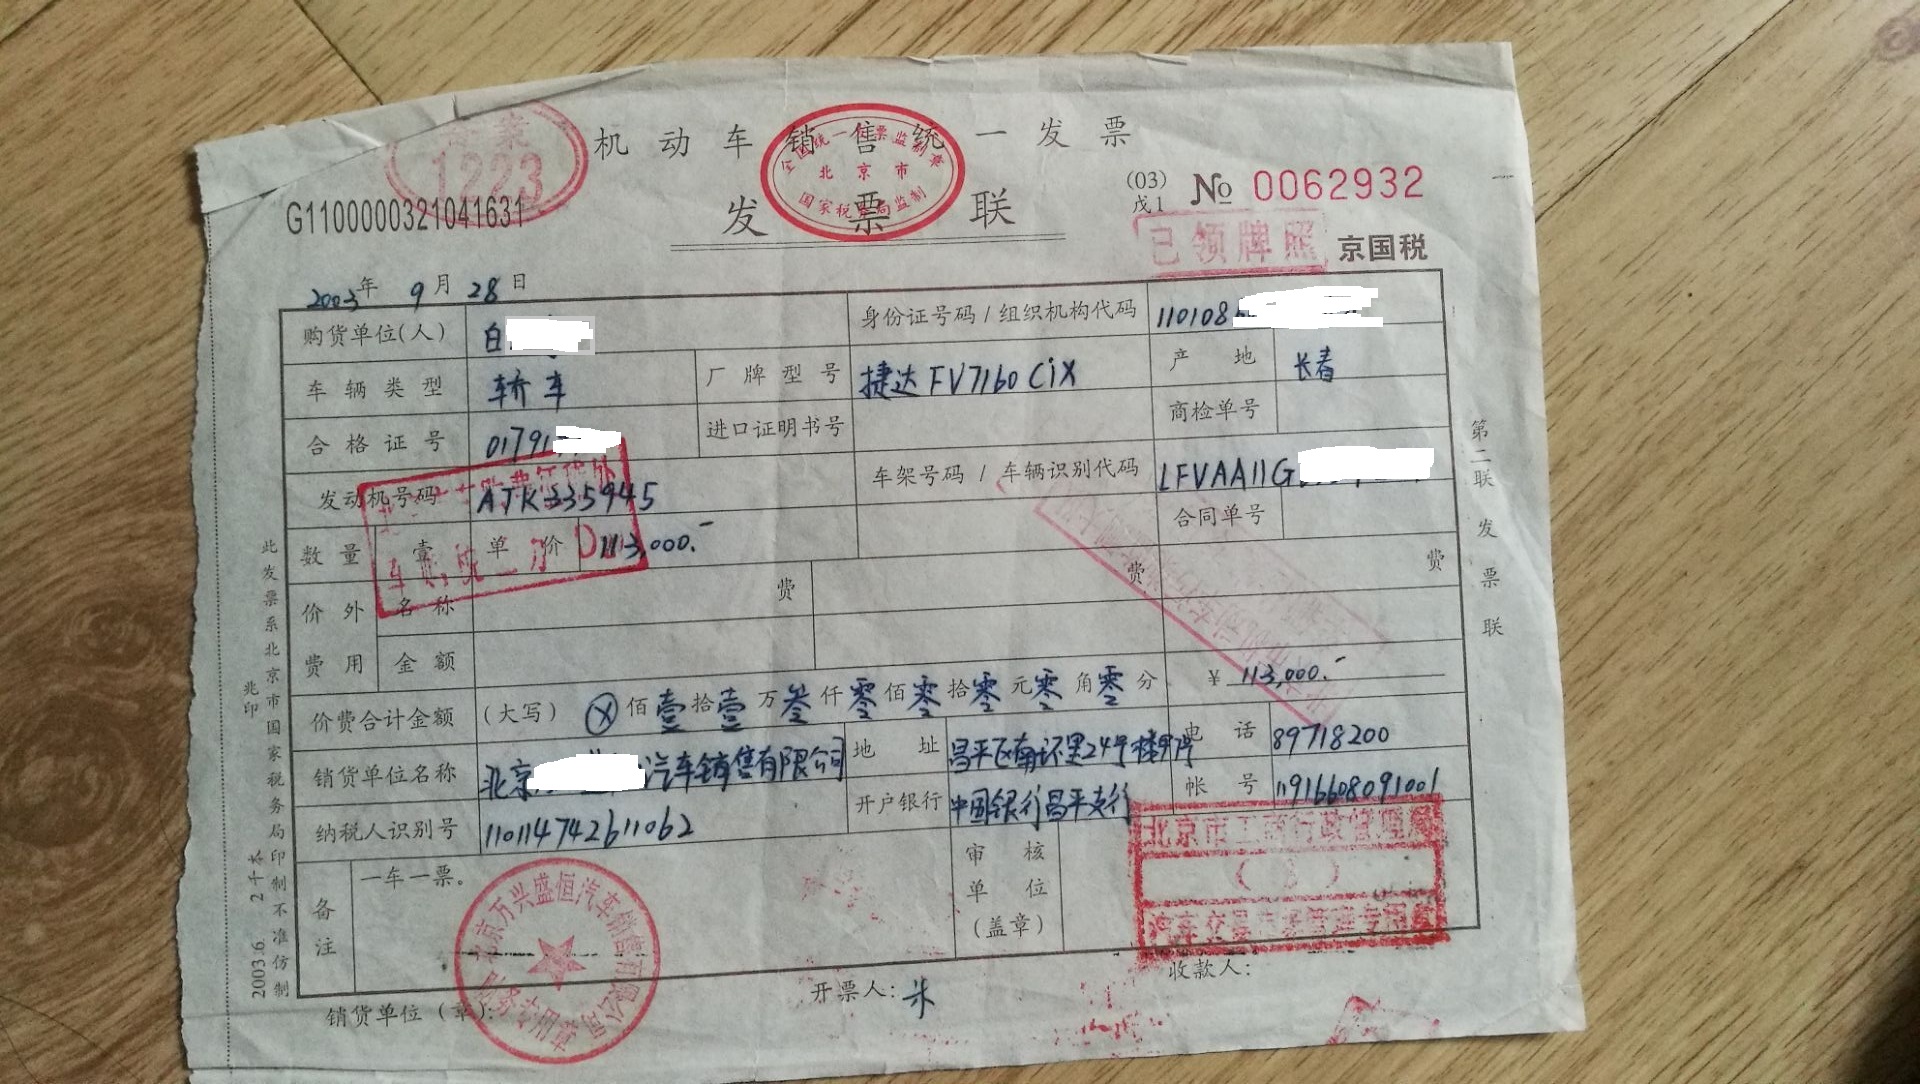 商业
1223
机动车销售统一发票
全国统一发票监制章
北京市
国家税务局监制
发票联
(03)
戊1
№ 0062932
G1100000321041631
已领牌照
京国税
2003年 9月 28日
购货单位(人) 白
身份证号码/组织机构代码 110108
车辆类型 轿车 厂牌型号 捷达 FV7160 CiX 产地 长春
合格证号 0179 进口证明书号 商检单号
发动机号码 ATK335945 车架号码/车辆识别代码 LFVAA11G
数量 壹 单价 113,000.- 合同单号
价外费用 名称 费 费 费
金额
价费合计金额 (大写) ⊗佰壹拾壹万叁仟零佰零拾零元零角零分 ¥ 113,000.-
销货单位名称 北京 汽车销售有限公司 地址 昌平区南环里24号楼 电话 89718200
纳税人识别号 110114742611062 开户银行 中国银行昌平支行 帐号 11916608091001
备注 一车一票。 审核单位(盖章)
北京市工商行政管理局
汽车交易市场管理专用章
北京万兴盛恒汽车销售有限公司
财务专用章
销货单位(章): 开票人: 收款人:
第二联 发票联
此发票系北京市国家税务局印制不准仿制
兆印 2千本 2003.6.